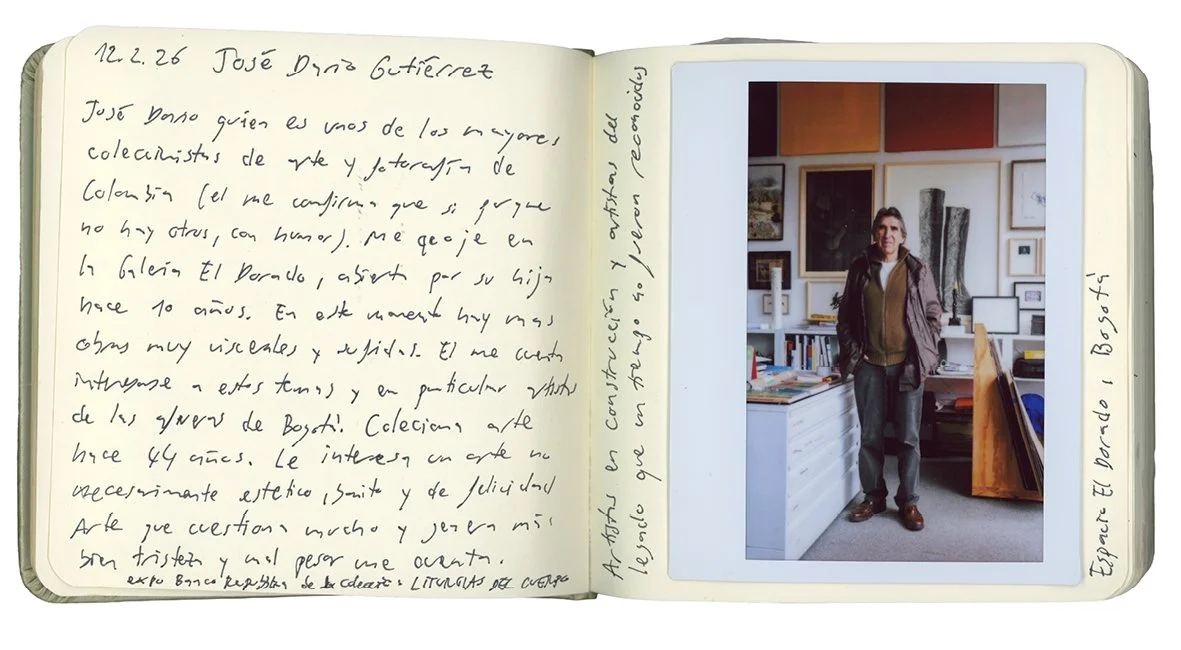 12.2.26 José Darío Gutiérrez
José Darío quien es unos de los mayores
colecionistas de arte y fotografía de
Colombia (el me confirma que si porque
no hay otros, con humor). Me acoje en
la Galería El Dorado, abierta por su hija
hace 10 años. En este momento hay unas
obras muy viscerales y sufidas. El me cuenta
interesarse a estos temas y en particular artistas
de las afueras de Bogotá. Coleciona arte
hace 44 años. Le interesa un arte no
necesariamente estético, bonito y de felicidad
Arte que cuestiona mucho y genera más
bien tristeza y mal pesar me cuenta.
expo Banco República de la colección LITURGIAS DEL CUERPO
Artistas en construcción y artistas del
legado que un tiempo no fueron reconocidos
Espacio El Dorado, Bogotá